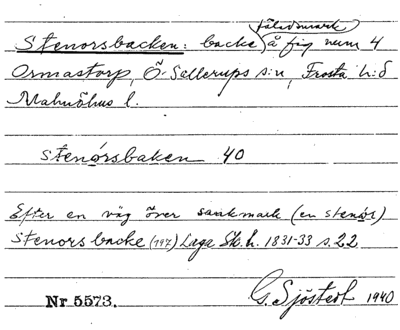 Stenorsbacken: backe (å fäladsmark) å fig num 4
Ormastorp, Ö. Sallerups s:n, Frosta h:d
Malmöhus l.
stenórsbaken 40
Efter en väg över sankmark (en stenór)
Stenors backe (797) Laga Sk. h. 1831-33 s. 22
G. Sjöstedt 1940
Nr 5573.